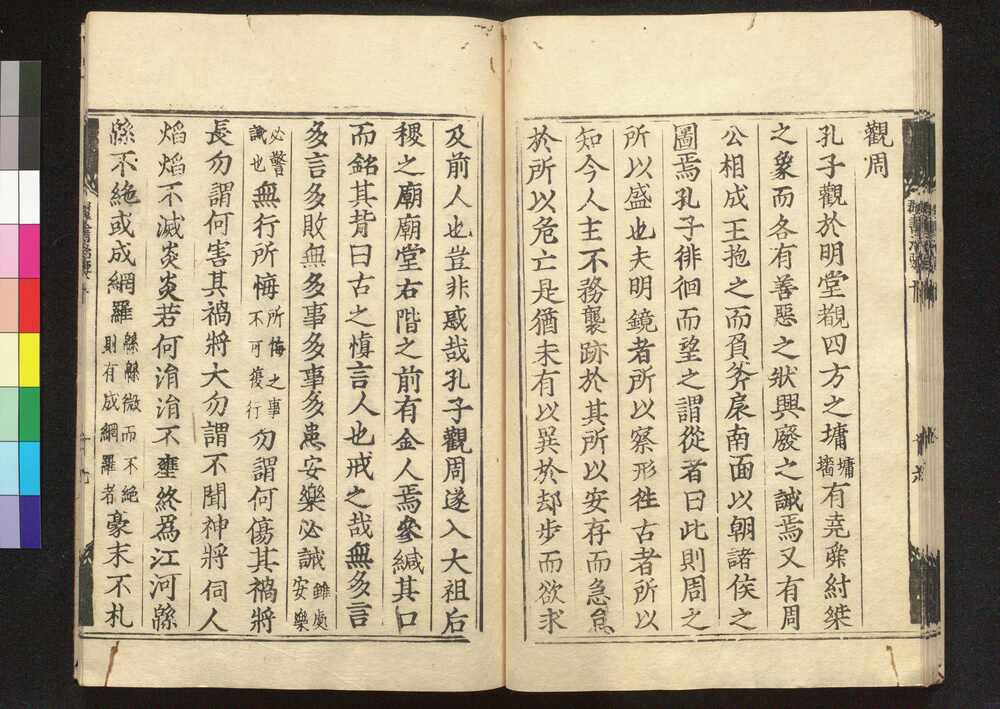 觀周
孔子觀於明堂覩四方之墉墉墻有堯舜紂桀
之象而各有善惡之狀興廢之誡焉又有周
公相成王抱之而負斧扆南面以朝諸侯之
圖焉孔子徘徊而望之謂從者曰此則周之
所以盛也夫明鏡者所以察形徃古者所以
知今人主不務襲跡於其所以安存而急怠
於所以危亡是猶未有以異於却步而欲求
及前人也豈非惑哉孔子觀周遂入大祖后
稷之廟廟堂右階之前有金人焉參緘其口
而銘其背曰古之慎言人也戒之哉無多言
多言多敗無多事多事多患安樂必誡雖處安樂
必警誡也無行所悔所悔之事不可復行勿謂何傷其禍將
長勿謂何害其禍將大勿謂不聞神將伺人
焰焰不滅炎炎若何涓涓不壅終爲江河緜
緜不絶或成網羅緜緜微而不絶則有成網羅者豪末不札